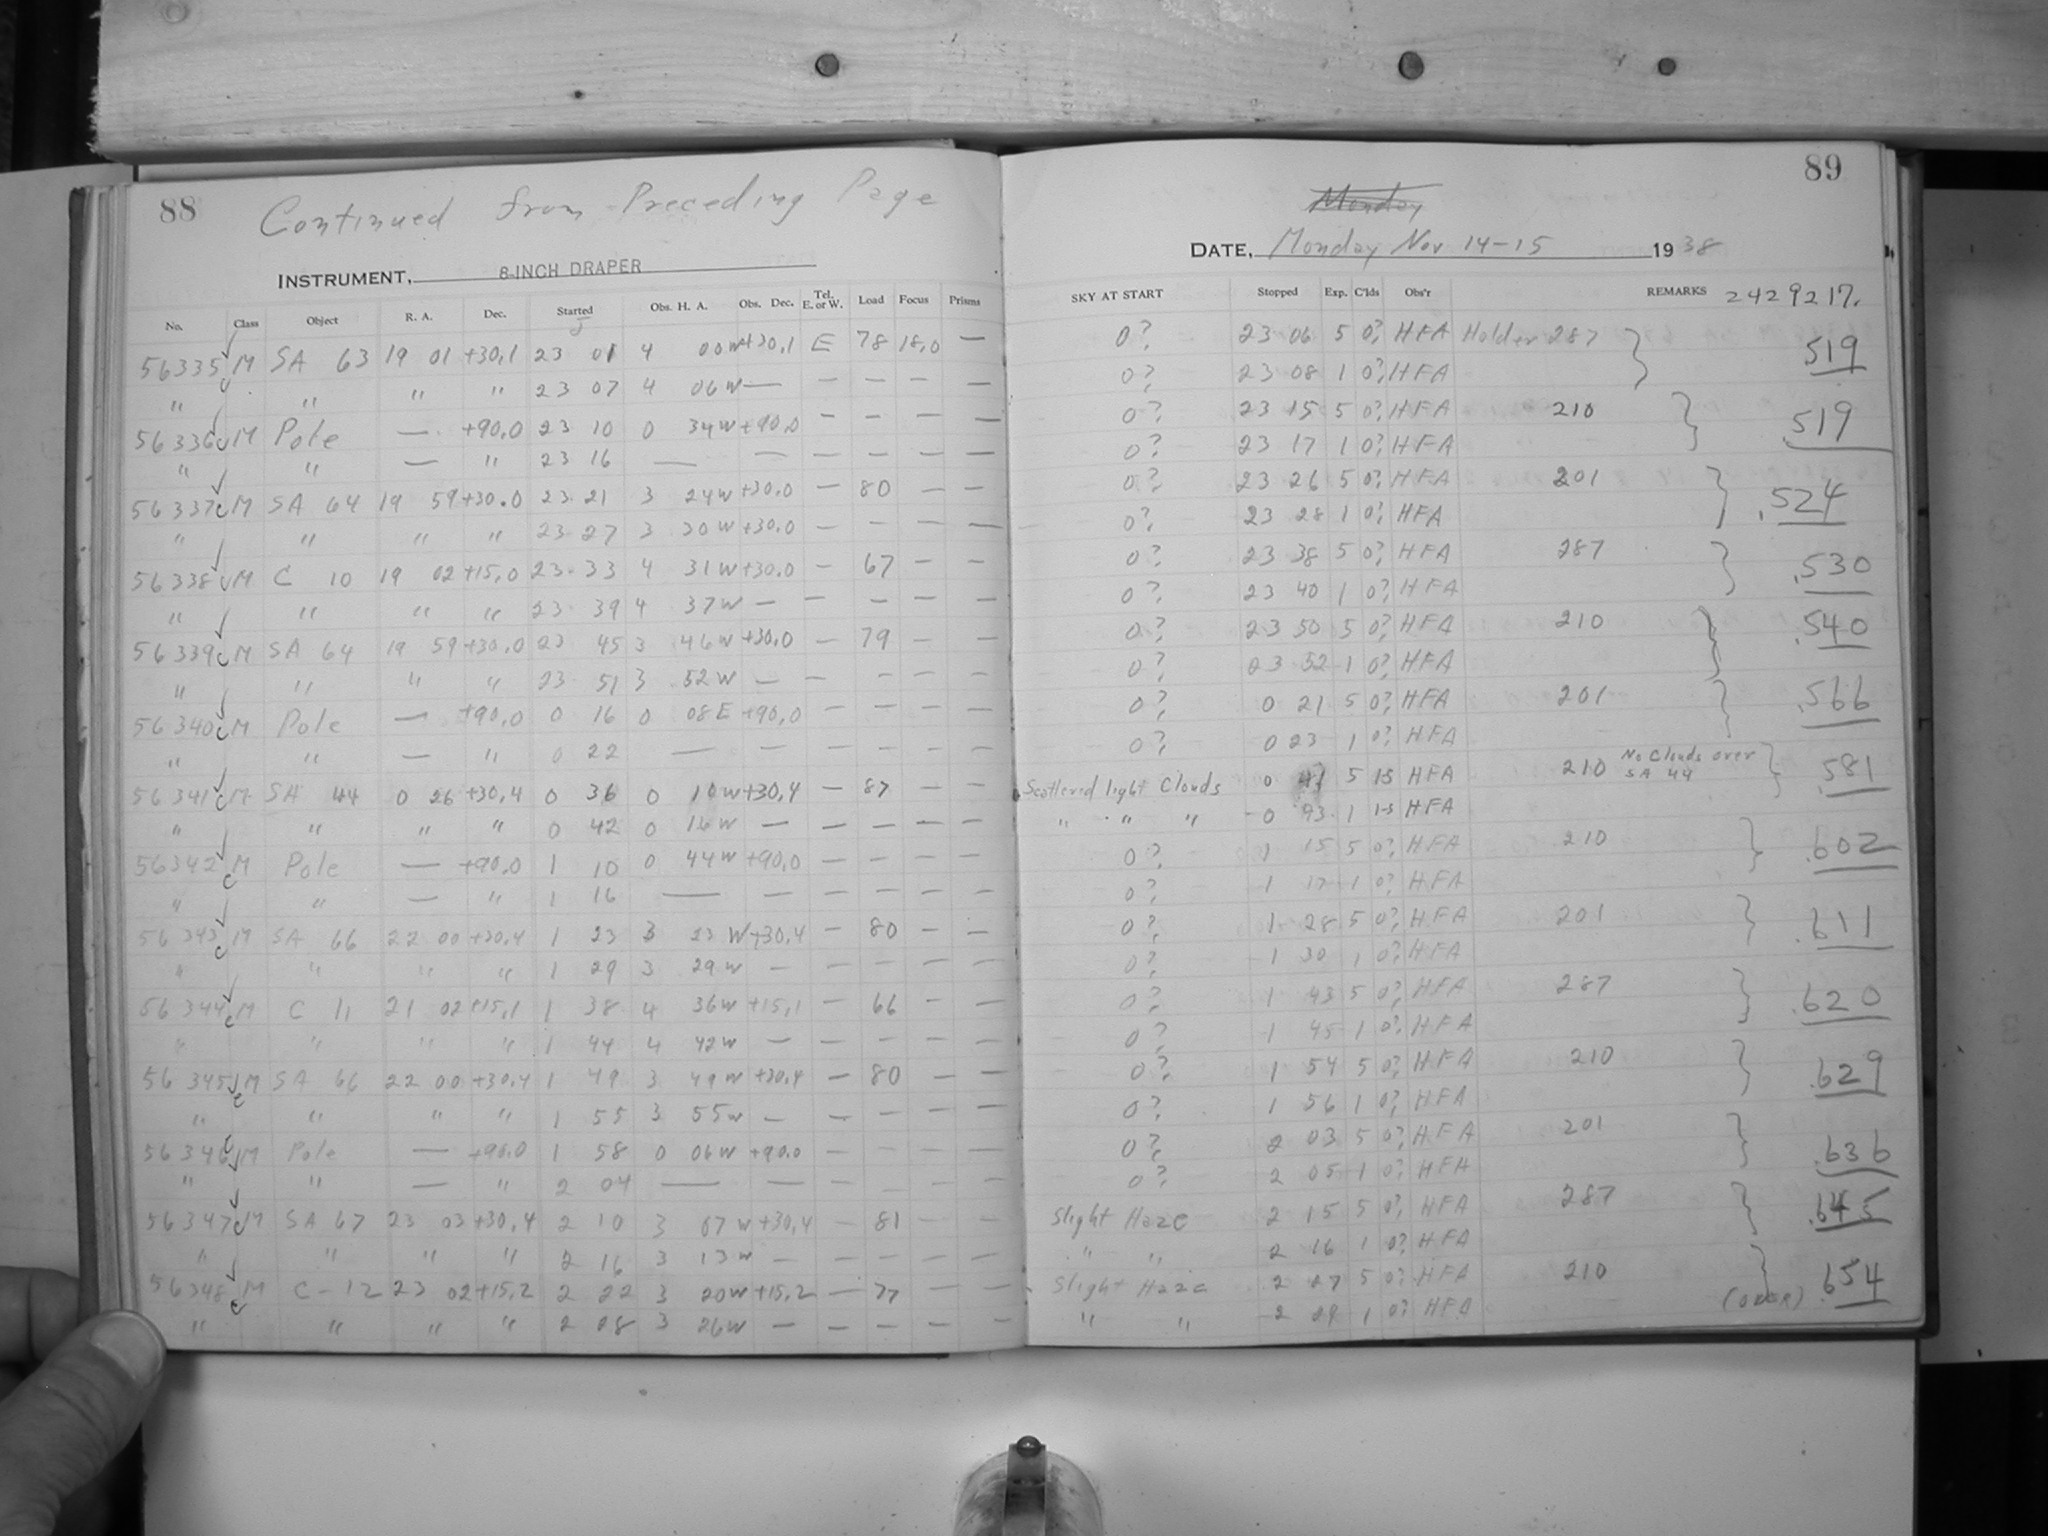 88
Continued from Preceding Page
INSTRUMENT, 8-INCH DRAPER
No. Class Object R. A. Dec. Started Obs. H. A. Obs. Dec. Tel. E. or W. Load Focus Prisms
56335 M SA 63 19 01 +30,1 23 01 4 00W +30,1 E 78 18,0 —
" " " " 23 07 4 06W — — — — —
56336 M Pole — +90,0 23 10 0 34W +90,0 — — — —
" " — " 23 16 — — — — — —
56337 M SA 64 19 59 +30.0 23 21 3 24W +30.0 — 80 — —
" " " " 23 27 3 30W +30.0 — — — —
56338 M C 10 19 02 +15,0 23 33 4 31W +30.0 — 67 — —
" " " " 23 39 4 37W — — — — —
56339 M SA 64 19 59 +30,0 23 45 3 46W +30,0 — 79 — —
" " " " 23 51 3 52W — — — — —
56340 M Pole — +90,0 0 16 0 08E +90,0 — — — —
" " — " 0 22 — — — — — —
56341 M SA 44 0 26 +30,4 0 36 0 10W +30,4 — 87 — —
" " " " 0 42 0 16W — — — — —
56342 M Pole — +90,0 1 10 0 44W +90,0 — — — —
" " — " 1 16 — — — — — —
56343 M SA 66 22 00 +30,4 1 23 3 23 W +30,4 — 80 — —
" " " " 1 29 3 29W — — — — —
56344 M C 11 21 02 +15,1 1 38 4 36W +15,1 — 66 — —
" " " " 1 44 4 42W — — — — —
56345 M SA 66 22 00 +30,4 1 49 3 49W +30,4 — 80 — —
" " " " 1 55 3 55W — — — — —
56346 M Pole — +90.0 1 58 0 06W +90.0 — — — —
" " — " 2 04 — — — — — —
56347 M SA 67 23 03 +30,4 2 10 3 07W +30,4 — 81 — —
" " " " 2 16 3 13W — — — — —
56348 M C-12 23 02 +15,2 2 22 3 20W +15,2 — 77 — —
" " " " 2 08 3 26W — — — — —
89
Monday
DATE, Monday Nov 14-15 1938
SKY AT START Stopped Exp. C'lds Obs'r REMARKS 2429217.
0? 23 06 5 0? HFA Holder 287 .519
0? 23 08 1 0? HFA
0? 23 15 5 0? HFA 210 .519
0? 23 17 1 0? HFA
0? 23 26 5 0? HFA 201 .524
0? 23 28 1 0? HFA
0? 23 38 5 0? HFA 287 .530
0? 23 40 1 0? HFA
0? 23 50 5 0? HFA 210 .540
0? 23 52 1 0? HFA
0? 0 21 5 0? HFA 201 .566
0? 0 23 1 0? HFA
Scattered light Clouds 0 41 5 1-5 HFA 210 No Clouds over SA 44 .581
" " " 0 43 1 1-5 HFA
0? 1 15 5 0? HFA 210 .602
0? 1 17 1 0? HFA
0? 1 28 5 0? HFA 201 .611
0? 1 30 1 0? HFA
0? 1 43 5 0? HFA 287 .620
0? 1 45 1 0? HFA
0? 1 54 5 0? HFA 210 .629
0? 1 56 1 0? HFA
0? 2 03 5 0? HFA 201 .636
0? 2 05 1 0? HFA
Slight Haze 2 15 5 0? HFA 287 .645
" " 2 16 1 0? HFA
Slight Haze 2 27 5 0? HFA 210 .654
" " 2 29 1 0? HFA (OVER)